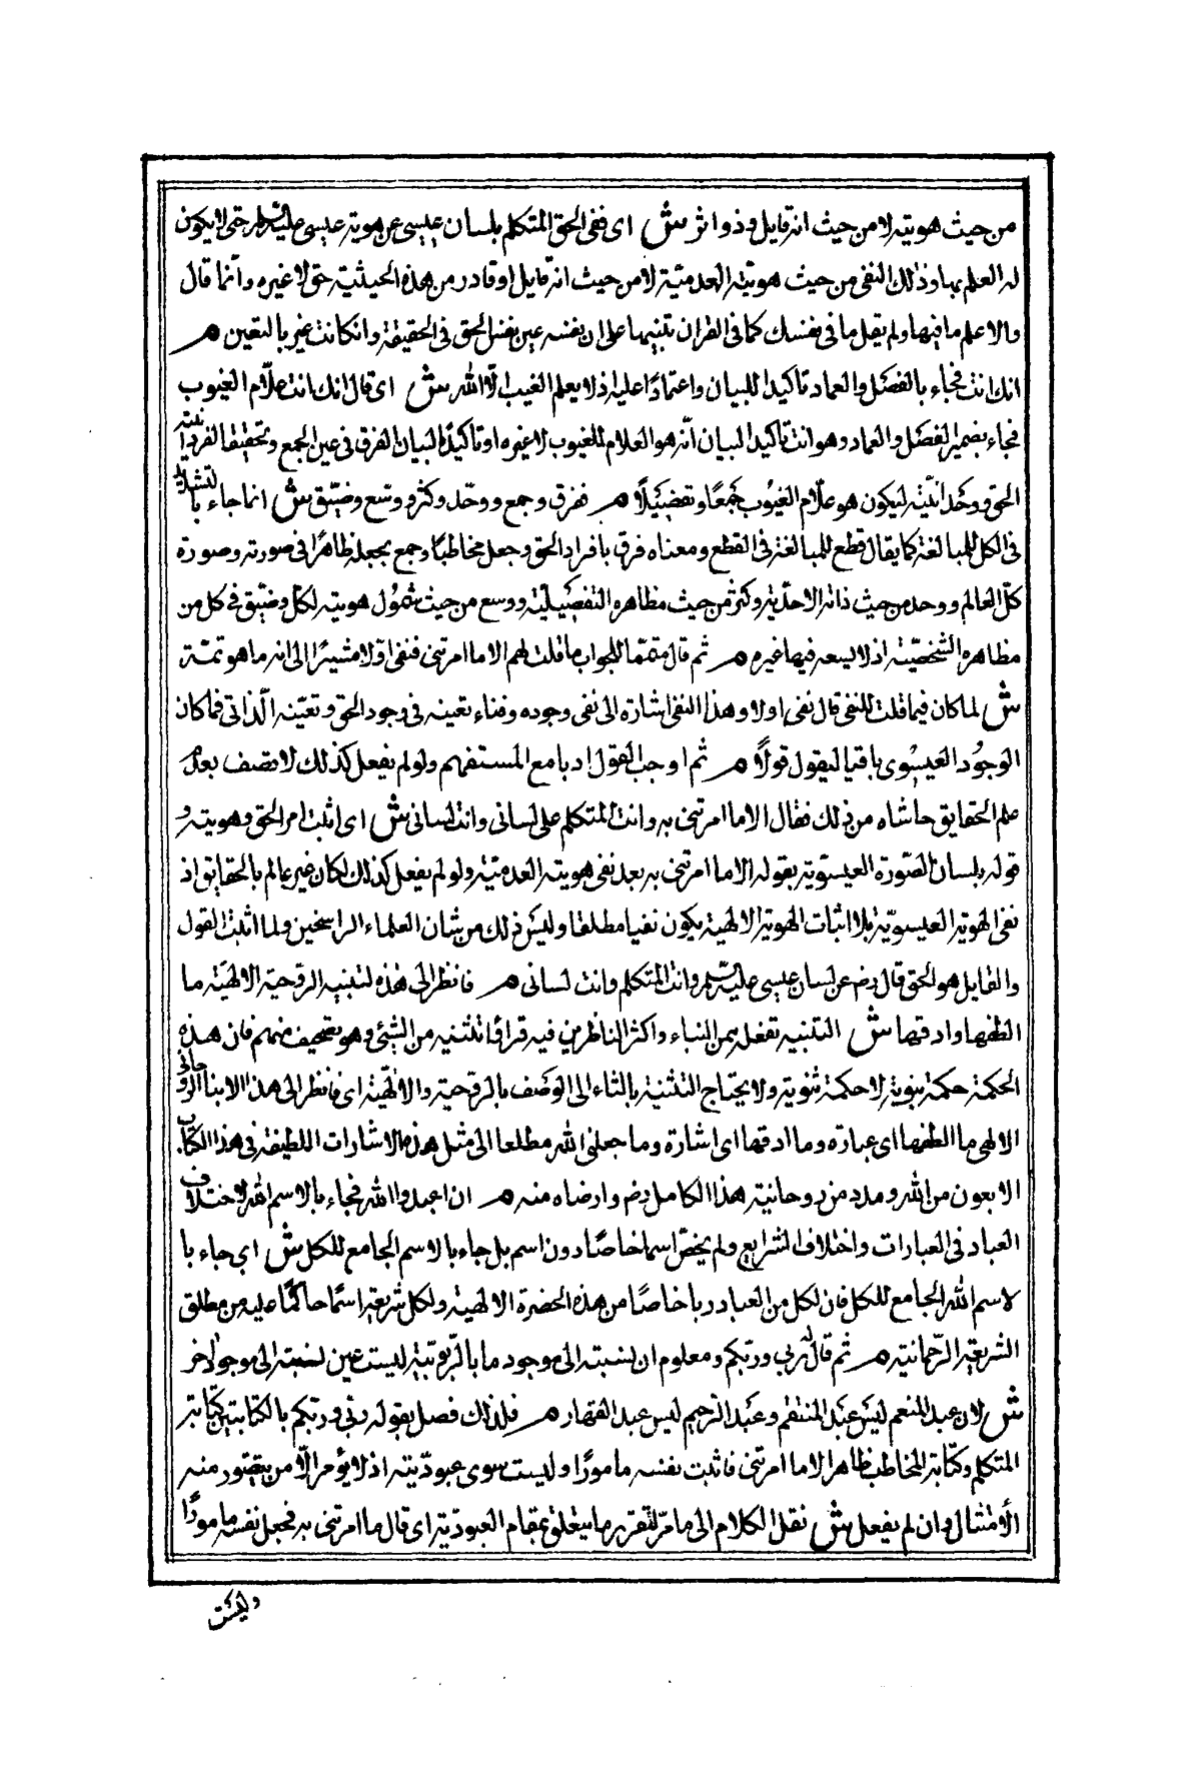 من حيث هويته لا من حيث انه قايل وذو اثر ش اى نفى الحق المتكلم بلسان عيسى عن هوية عيسى عليه السلام حتى لا يكون
له العلم بها وذلك النفى من حيث هويته العدمية لا من حيث انه قايل او قادر من هذه الحيثية حق لا غيره وانما قال
ولا اعلم ما فيها ولم يقل ما فى نفسك كما فى القران تنبيها على ان نفسه عين نفس الحق فى الحقيقة وانكانت غيره بالتعين م
انك انت فجاء بالفصل والعماد تاكيدا للبيان واعتمادا عليه اذ لا يعلم الغيب الا الله ش اى قال انك انت علّام الغيوب
فجاء بضمير الفصل والعماد وهو انت تاكيدا لبيان انه هو العلام للغيوب لا غيره او تاكيدا لبيان الفرق فى عين الجمع وتحقيقا لفردانية
الحق ووحدانيته ليكون هو علّام الغيوب جمعا وتفصيلا م ففرق وجمع ووحد وكثر ووسع وضيّق ش انما جاء بالتشديد
فى الكل للمبالغة كما يقال قطع للمبالغة فى القطع ومعناه فرق بافراد الحق وجعله مخاطبا وجمع بجعله ظاهرا فى صورته وصورة
كل العالم ووحد من حيث ذاته الاحدية وكثر من حيث مظاهره التفصيلية ووسع من حيث شمول هويته لكل وضيق فى كل من
مظاهره الشخصية اذ لا يسعه فيها غيره م ثم قال متمما للجواب ما قلت لهم الا ما امرتنى فنفى اولا مشيرا الى انه ما هو ثمة
ش لما كان فيما قلت للنفى قال نفى اولا وهذا النفى اشارة الى نفى وجوده وفناء تعينه فى وجود الحق وتعينه الذاتى فما كان
الوجود العيسوى باقيا ليقول قولا م ثم اوجب القول ادبا مع المستفهم ولو لم يفعل كذلك لاتصف بعدم
علم الحقايق حاشاه من ذلك فقال الا ما امرتنى به وانت المتكلم على لسانى وانت لسانى ش اى اثبت امر الحق وهويته و
قوله بلسان الصورة العيسوية بقوله الا ما امرتنى به بعد نفى هويته العدمية ولو لم يفعل كذلك لكان غير عالم بالحقايق اذ
نفى الهوية العيسوية بلا اثبات الهوية الالهية يكون نفيا مطلقا وليس ذلك من شان العلماء الراسخين ولما اثبت القول
والقايل هو الحق قال رض عن لسان عيسى عليه السلم وانت المتكلم وانت لسانى م فانظر الى هذه التنبيه الروحية الالهية ما
الطفها وادقها ش التنبيه تفعله من النباء واكثر الناظرين فيه قرا فى تثنيه من الشئ وهو تصحيف منهم فان هذه
الحكمة حكمة نبوية لا حكمة ثنوية ولا يحتاج التثنية بالثاء الى الوصف بالروحية والالهية اى فانظر الى هذا الابناء الروحانى
الالهى ما الطفها اى عبارة وما ادقها اى اشارة وما جعلنى الله مطلعا الى مثل هذه الاشارات اللطيفة فى هذا الكتاب
الا بعون من الله ومدد من روحانية هذا الكامل رض وارضاه منه م ان اعبدوا الله فجاء بالاسم الله لاختلاف
العباد فى العبارات واختلاف الشرايع ولم يخص اسما خاصا دون اسم بل جاء بالاسم الجامع للكل ش اى جاء با
لاسم الله الجامع للكل فان لكل من العباد ربا خاصا من هذه الحضرة الالهية ولكل شريعة اسما حاكما عليه من مطلق
الشريعة الرحمانية م ثم قال ربى وربكم ومعلوم ان نسبته الى موجود ما بالربوبية ليست عين نسبته الى موجود اخر
ش لان عبد المنعم ليس عبد المنتقم وعبد الرحيم ليس عبد القهار م فلذلك فصل بقوله ربى وربكم بالكنايتين كناية
المتكلم وكناية المخاطب ظاهر الا ما امرتنى فاثبت نفسه مامورا وليست سوى عبوديته اذ لا يؤمر الا من يتصور منه
الامتثال وان لم يفعل ش نقل الكلام الى ما مرّ لتقرير ما يتعلق بمقام العبودية اى قال ما امرتنى به فجعل نفسه مامورا
وليست